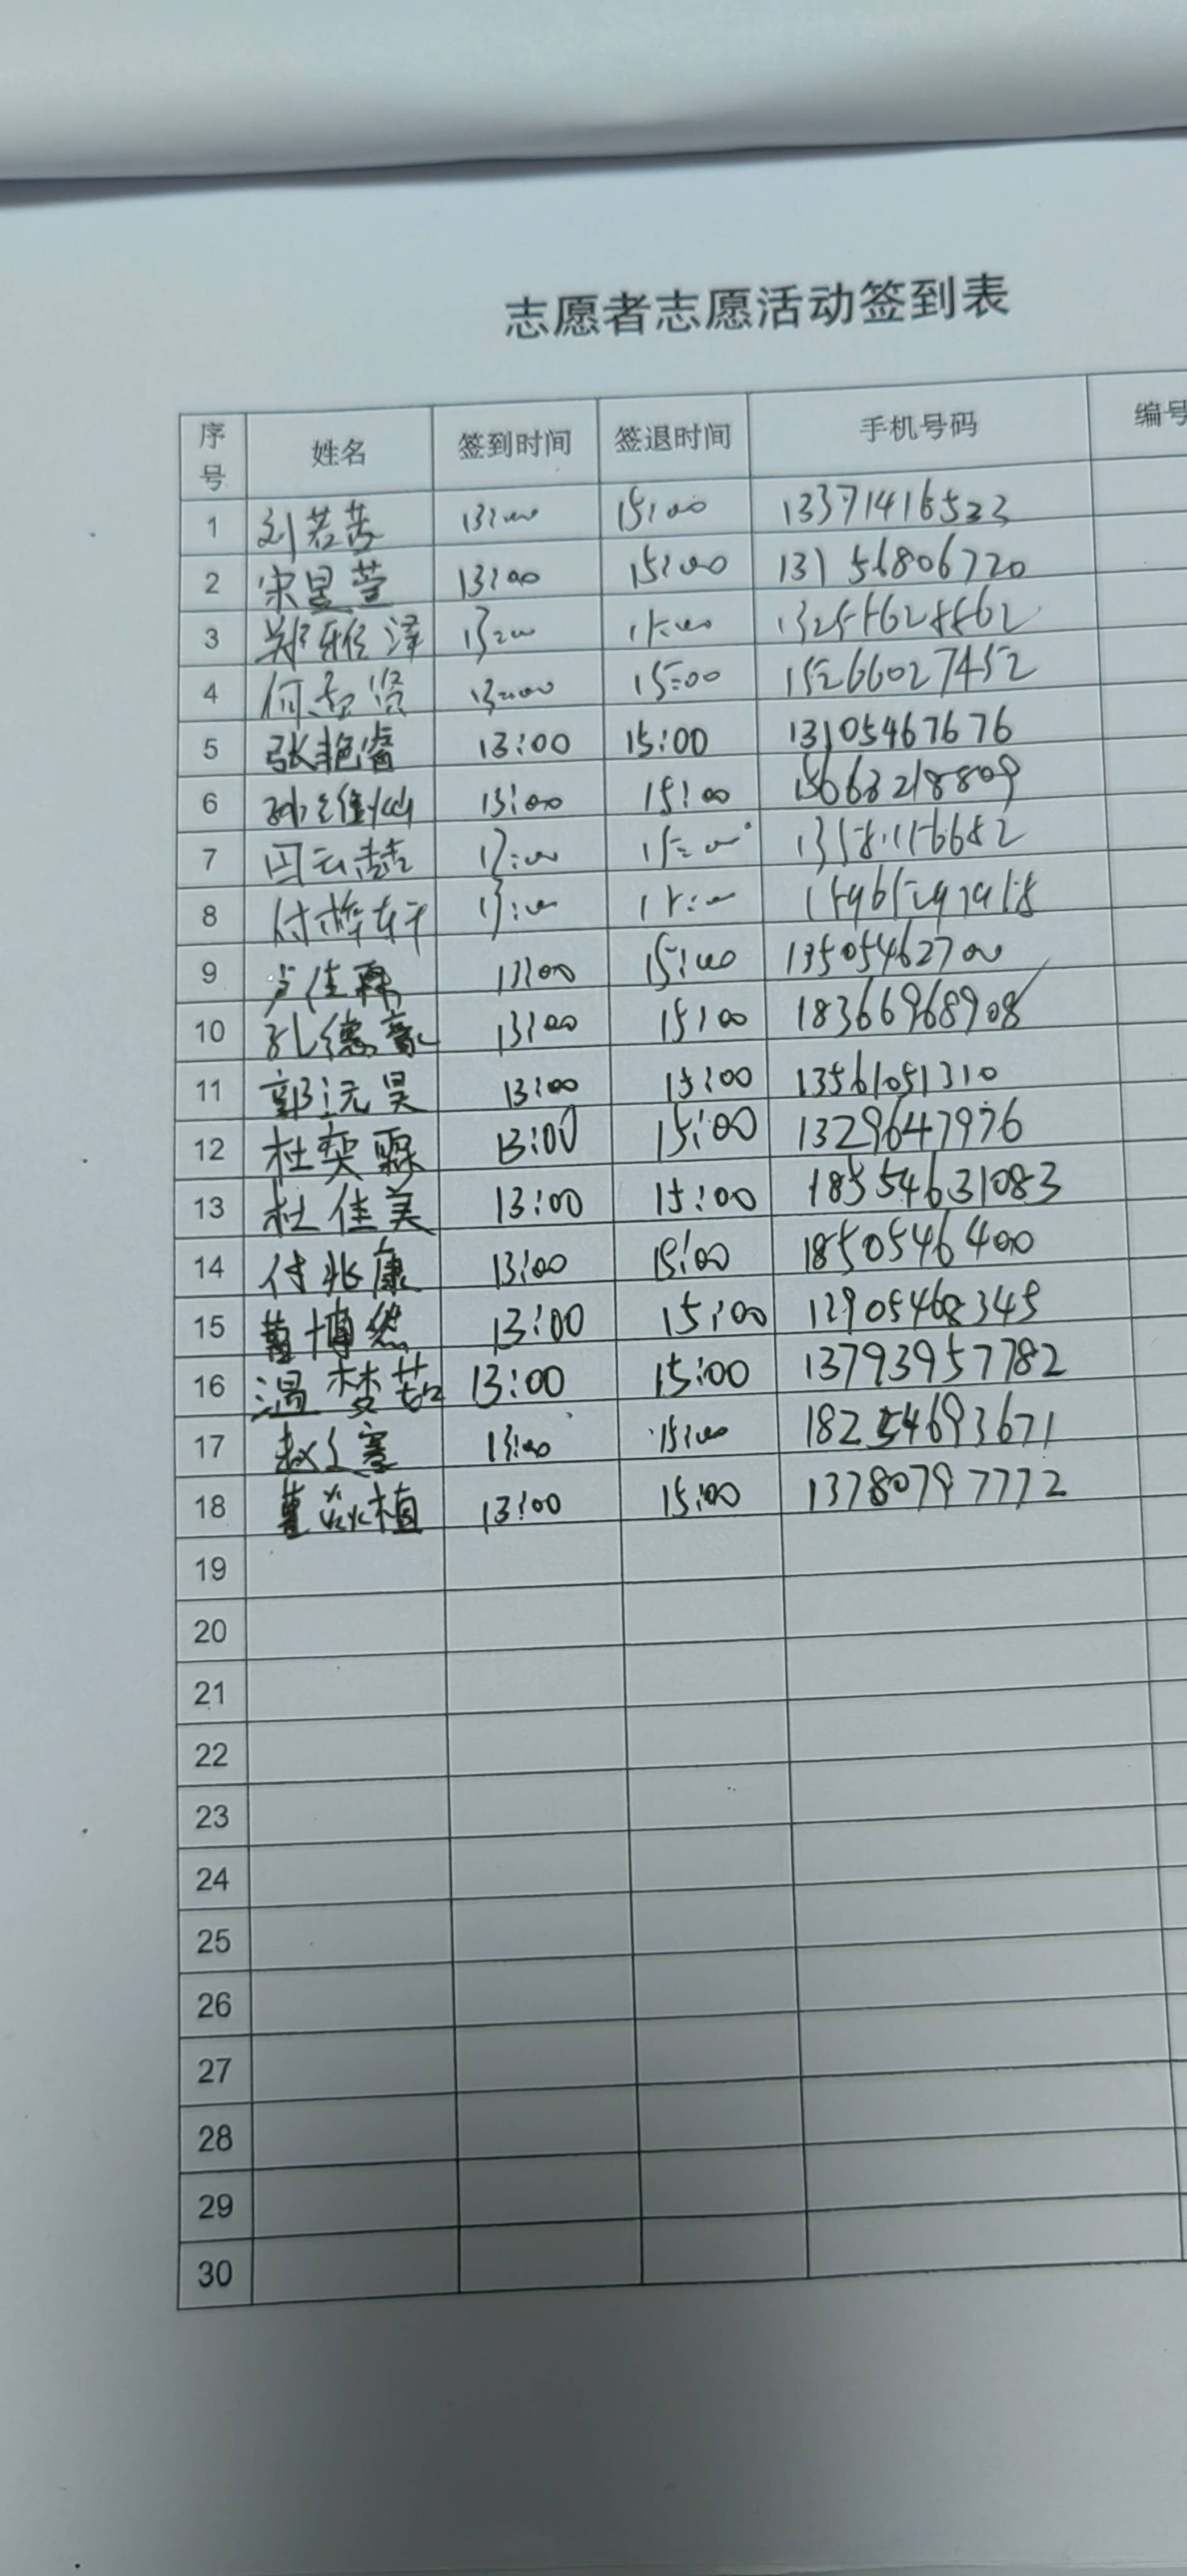 志愿者志愿活动签到表
序号 姓名 签到时间 签退时间 手机号码 编号
1 刘若 13:00 15:00 13371416523
2 宋昱萱 13:00 15:00 13156806720
3 郑雅泽 13:00 15:00
4 何志贤 13:00 15:00 15266027452
5 张艳睿 13:00 15:00 13105467676
6 13:00 15:00 15663218809
7 闫云喆 13:00 15:00
8 付梓轩 13:00 15:00
9 卢佳霖 13:00 15:00 13505462700
10 孔德豪 13:00 15:00 18366968908
11 郭沅昊 13:00 15:00 13561051310
12 杜奕霖 13:00 15:00 1329647976
13 杜佳美 13:00 15:00 18554631083
14 付兆康 13:00 15:00 1850546400
15 董博然 13:00 15:00
16 温梦茹 13:00 15:00 13793957782
17 赵 13:00 15:00 18254693671
18 董焱植 13:00 15:00 13780797772
19
20
21
22
23
24
25
26
27
28
29
30